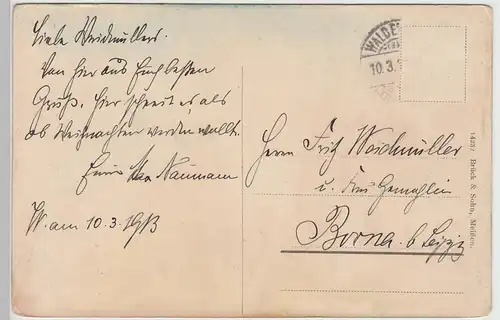 Liebe Weidmüllers.
Von hier aus Euch besten
Gruß, hier schneit es, als
ob Weihnachten werden wollt.
Euer Max Naumann
W. am 10.3.1913
WALDE
10.3.1
Herrn Fritz Waidmüller
u. Frau Gemahlin
Borna b Leipzig
14287 Brück & Sohn, Meißen.